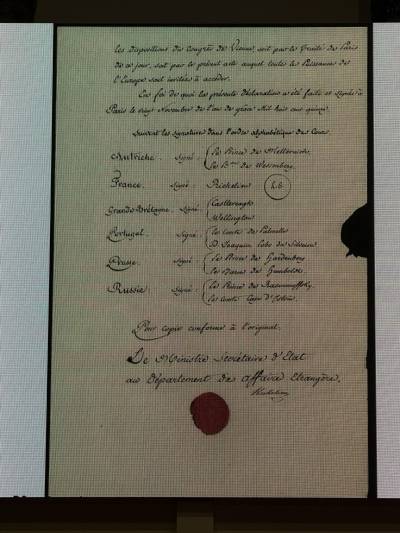 les dispositions du congrès de Vienne, soit par le Traité de Paris
de ce jour, soit par le présent acte auquel toutes les Puissances de
l'Europe sont invitées à accéder.
En foi de quoi la présente déclaration a été faite et signée à
Paris le vingt Novembre de l'an de grâce Mil huit cent quinze.
Suivent les signatures dans l'ordre alphabétique des Cours.
Autriche. Signé: Le Prince de Metternich.
Le Bon. de Wessenberg.
France. Signé: Richelieu L.S
Grande Bretagne. Signé: Castlereagh
Wellington
Portugal. Signé: Le Comte de Palmella
D. Joaquim Lobo da Silveira
Prusse. Signé: Le Prince de Hardenberg
Le Baron de Humboldt.
Russie: Signé: Le Prince de Rasoumoffsky.
Le Comte Capo d'Istria.
Pour copie conforme à l'original.
Le Ministre Secrétaire d'Etat
au Département des affaires Etrangères.
Richelieu